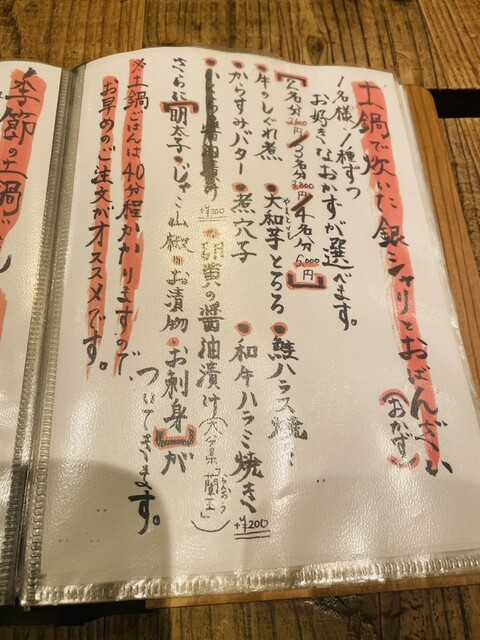 土鍋で炊いた銀シャリとおばんざい(おかず)
1名様、1種ずつ
お好きなおかずが選べます。
【2名分2600円/3名分3800円/4名分5000円】
・牛のしぐれ煮 ・大和芋とろろ ・鮭ハラス焼き
やまといも
・からすみバター ・煮穴子 ・和牛ハラミ焼き +¥200
・いくら醤油漬け +¥200 ・卵黄の醤油漬け(大分県「蘭王」)
らんおう
さらに【明太子・じゃこ山椒・お漬物・お刺身】が
ついてきます。
※土鍋ごはんは40分程かかりますので、
お早めのご注文がオススメです。
季節の土鍋ごはん